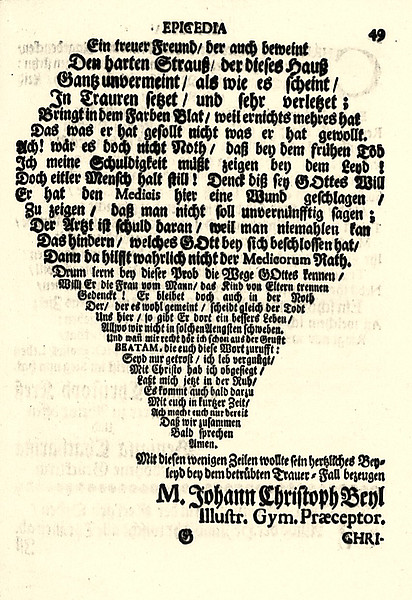 EPICEDIA
49
Ein treuer Freund/ der auch beweint
Den harten Strauß/ der dieses Hauß
Gantz unvermeint/ als wie es scheint/
In Trauren setzet/ und sehr verletzet;
Bringt in dem Farben Blat/ weil er nichts mehres hat
Das was er hat gesollt nicht was er hat gewollt.
Ach! wår es doch nicht Noth/ daß bey dem frühen Tod
Ich meine Schuldigkeit müßt zeigen bey dem Leyd!
Doch eitler Mensch halt still! Denck diß sey GOttes Will
Er hat den Medicis hier eine Wund geschlagen/
Zu zeigen/ daß man nicht soll unvernünfftig sagen;
Der Artzt ist schuld daran/ weil man niemahlen kan
Das hindern/ welches GOtt bey sich beschlossen hat/
Dann da hilfft wahrlich nicht der Medicorum Rath.
Drum lernt bey dieser Prob die Wege GOttes kennen/
Will Er die Frau vom Mann/ das Kind von Eltern trennen
Gedenckt! Er bleibet doch auch in der Noth
Der/ der es wohl gemeint/ scheidt gleich der Todt
Uns hier/ so gibt Er dort ein bessers Leben/
Allwo wir nicht in solchen Aengsten schweben.
Und wan mir recht hör ich schon aus der Grufft
BEATAM, die euch diese Wort zurufft:
Seyd nur getrost/ ich leb vergnügt/
Mit Christo hab ich obgesiegt/
Laßt mich jetzt in der Ruh/
Es kommt auch bald darzu
Mit euch in kurtzer Zeit/
Ach macht euch nur bereit
Daß wir zusammen
Bald sprechen
Amen.
Mit diesen wenigen Zeilen wollte sein hertzliches Bey-
leyd bey dem betrübten Trauer-Fall bezeugen
M. Johann Christoph Beyl
Illustr. Gym. Præceptor.
G
CHRI-